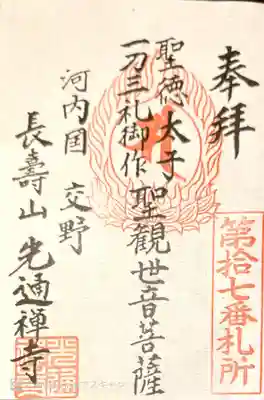 奉拝
第拾七番札所
聖徳太子
一刀三礼御作聖観世音菩薩
河内国交野
長壽山光通禅寺